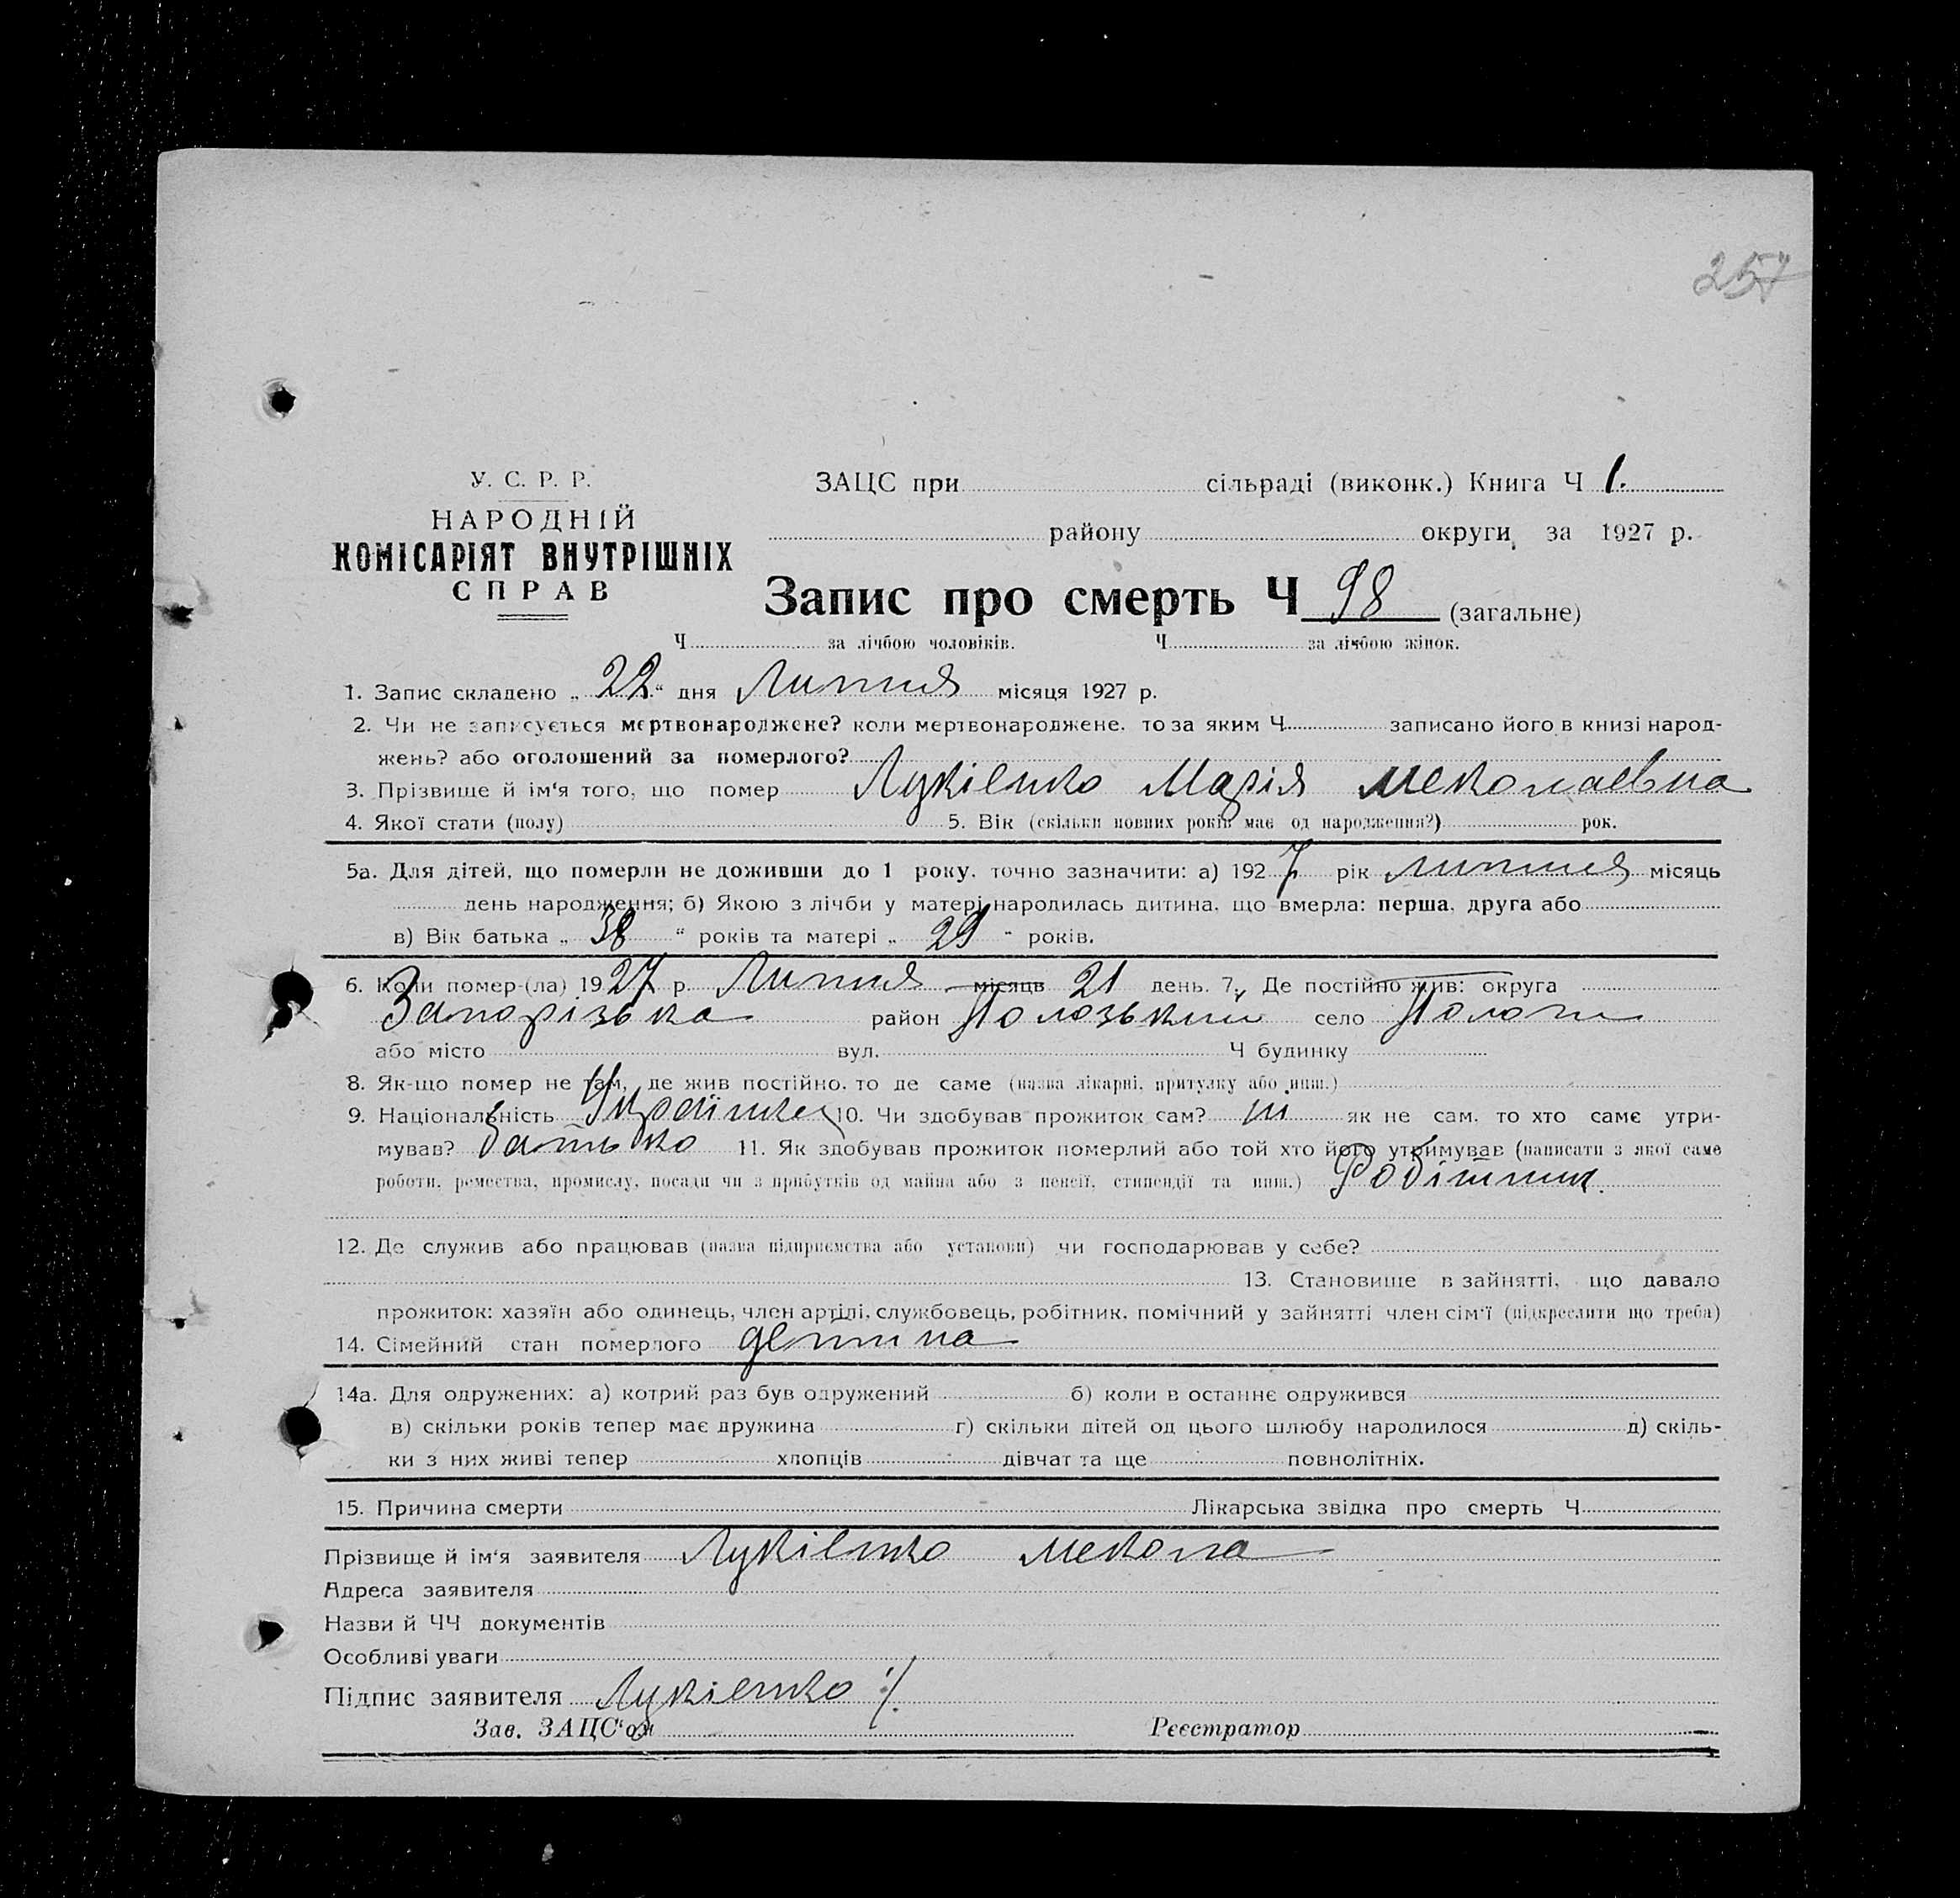 257
У. С. Р. Р.
НАРОДНІЙ
КОМІСАРІЯТ ВНУТРІШНІХ
СПРАВ
ЗАЦС при сільраді (виконк.) Книга Ч 1.
району округи за 1927 р.
Запис про смерть Ч 98 (загальне)
Ч за лічбою чоловіків. Ч за лічбою жінок.
1. Запис складено „ 22 “ дня Липня місяця 1927 р.
2. Чи не записується мертвонароджене? коли мертвонароджене, то за яким Ч записано його в книзі народ-
жень? або оголошений за померлого?
3. Прізвище й ім‘я того, що помер Лукіенко Марія Меколаевна
4. Якої стати (полу) 5. Вік (скільки повних років має од народження?) рок.
5а. Для дітей, що померли не доживши до 1 року, точно зазначити: а) 1927 рік липня місяць
день народження; б) Якою з лічби у матері народилась дитина, що вмерла: перша, друга або
в) Вік батька „ 38 “ років та матері „ 29 “ років.
6. Коли помер-(ла) 1927 р. Липня місяця 21 день. 7. Де постійно жив: округа
Запорізька район Полозький село Пологи
або місто вул. Ч будинку
8. Як-що помер не там, де жив постійно, то де саме (назва лікарні, притулку або инш.)
9. Національність Українка 10. Чи здобував прожиток сам? ні як не сам, то хто саме утри-
мував? батько 11. Як здобував прожиток померлий або той хто його утримував (написати з якої саме
роботи, ремества, промислу, посади чи з прибутків од майна або з пенсії, стипендії та инш.) Робітник.
12. Де служив або працював (назва підприємства або установи) чи господарював у себе?
13. Становище в зайнятті, що давало
прожиток: хазяїн або одинець, член артілі, службовець, робітник, помічний у зайнятті член сім‘ї (підкреслити що треба)
14. Сімейний стан померлого детина
14а. Для одружених: а) котрий раз був одружений б) коли в останнє одружився
в) скільки років тепер має дружина г) скільки дітей од цього шлюбу народилося д) скіль-
ки з них живі тепер хлопців дівчат та ще повнолітніх.
15. Причина смерти Лікарська звідка про смерть Ч
Прізвище й ім‘я заявителя Лукіенко Мекола
Адреса заявителя
Назви й ЧЧ документів
Особливі уваги
Підпис заявителя Лукіенко
Зав. ЗАЦС‘ом Реєстратор